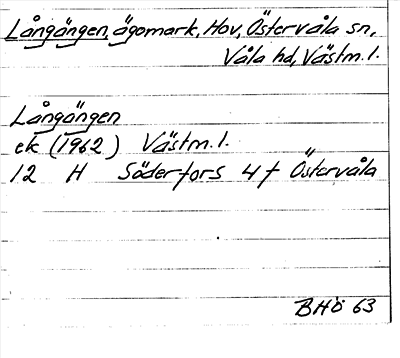 Långängen, ägomark, Hov, Östervåla sn,
Våla hd, Västm. l.
Långängen
ek (1962) Västm. l.
12 H Söderfors 4 f Östervåla
BHÖ 63